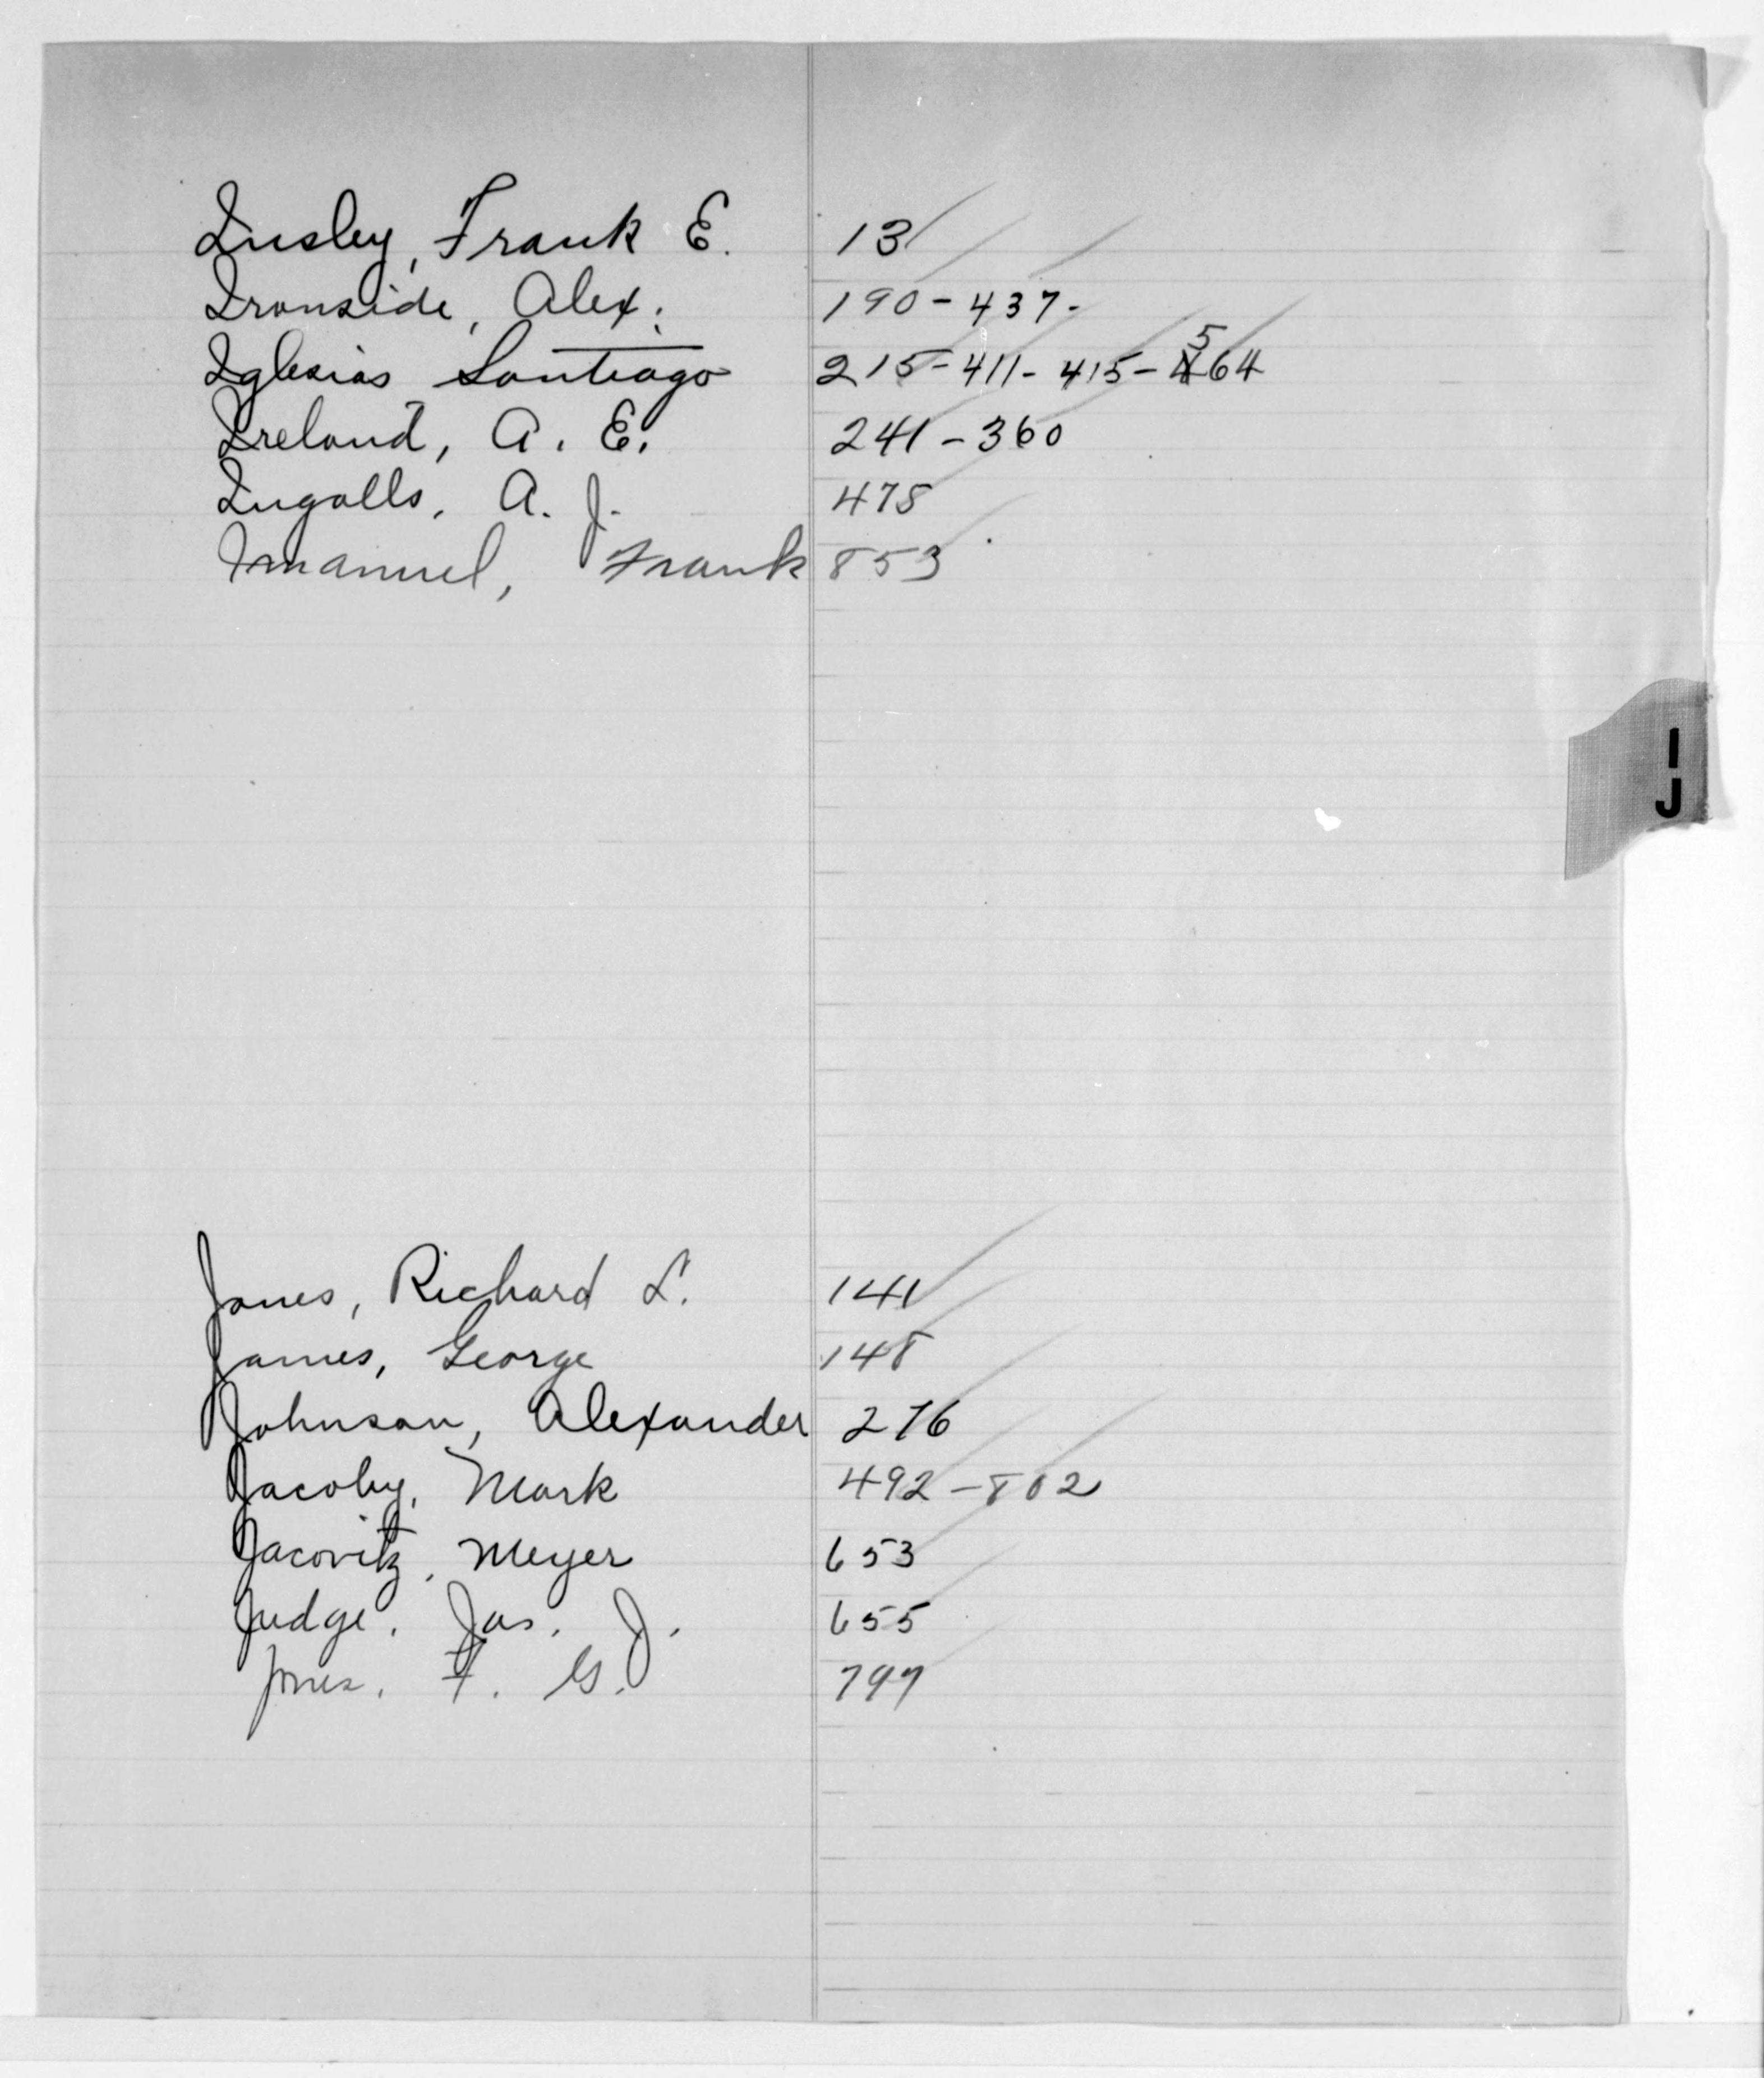 Insley, Frank E. 13
Ironside, Alex. 190 - 437 -
Iglesias Santiago 215 - 411 - 415 - 5 464
Ireland, A. E. 241 - 360
Ingalls, A. J. 478
Imanuel, Frank 853
I
J
Jones, Richard L. 141
James, George 148
Johnson, Alexander 276
Jacoby, Mark 492 - 802
Jacovitz, Meyer 653
Judge, Jas. J. 655
Jones, F. G. 797